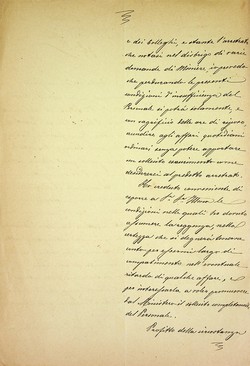 e dei colleghi, e stante l'arretrato
che notasi nel disbrigo di varie
domande di Miniere, io prevedo
che perdurando le presenti
condizioni d'insufficienza del
Personale si potrà solamente, e
con sagrificio delle ore di riposo,
accudire agli affari quotidiani
ordinari senza potere apportare
un sollecito esaurimento
al predetto arretrato.
Ho creduto conveniente di
esporre a S. S. Illma le
condizioni nelle quali ho dovuto
assumere la reggenza, nella
certezza che si degnerà tenerne
conto per essermi largo di
compatimento nell'eventuale
ritardo di qualche affare, e
per interessarla a voler promuovere
dal Ministero il sollecito completamento
del Personale.
Profitto della circostanza